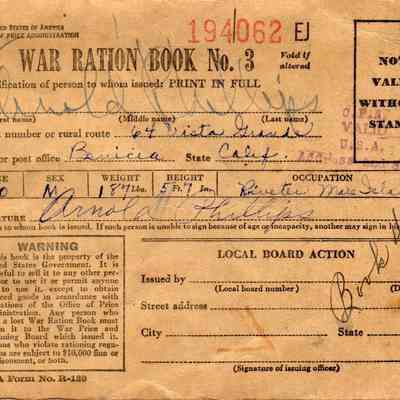 STATES OF AMERICA
OF PRICE ADMINISTRATION
194062 EJ
WAR RATION BOOK No. 3
Void if
altered
NOT
VALID
WITHOUT
STAMP
fication of person to whom issued: PRINT IN FULL
Arnold Phillips
(Middle name) (Last name)
t number or rural route 64 Vista Grande
or post office Benicia State Calif.
SEX WEIGHT HEIGHT OCCUPATION
M 187 Lbs. 5 Ft. 7 In. Riveter Mare Isla
ATURE Arnold Phillips
to whom book is issued. If such person is unable to sign because of age or incapacity, another may sign in
WARNING
his book is the property of the
ted States Government. It is
ful to sell it to any other per-
or to use it or permit anyone
to use it, except to obtain
ced goods in accordance with
ations of the Office of Price
inistration. Any person who
a lost War Ration Book must
n it to the War Price and
ning Board which issued it.
ons who violate rationing regu-
s are subject to $10,000 fine or
isonment, or both.
LOCAL BOARD ACTION
Issued by
(Local board number)
Street address
City State
(Signature of issuing officer)
Book
A Form No. R-130